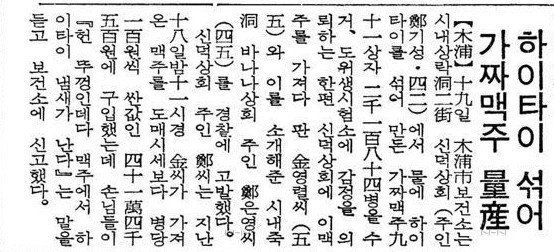 하이타이 섞어
가짜맥주 量産
【木浦】十九일 木浦市보건소는
시내상락洞二街 신덕상회(주인
鄭기성·四二)에서 물에 하이
타이를 섞어 만든 가짜맥주九
十一상자 二千一百八十四병을 수
거、도위생시험소에 감정을 의
뢰하는 한편 신덕상회에 이맥
주를 가져다 판 金영렬씨(五
五)와 이를 소개해준 시내죽
洞 바나나상회 주인 鄭은영씨
(四五)를 경찰에 고발했다。
신덕상회 주인 鄭씨는 지난
十八일밤十一시경 金씨가 가져
온 맥주를 도매시세보다 병당
一百원씩 싼값인 四十一萬四千
五百원에 구입했는데 손님들이
『헌 뚜껑인데다 맥주에서 하
이타이 냄새가 난다』는 말을
듣고 보건소에 신고했다。